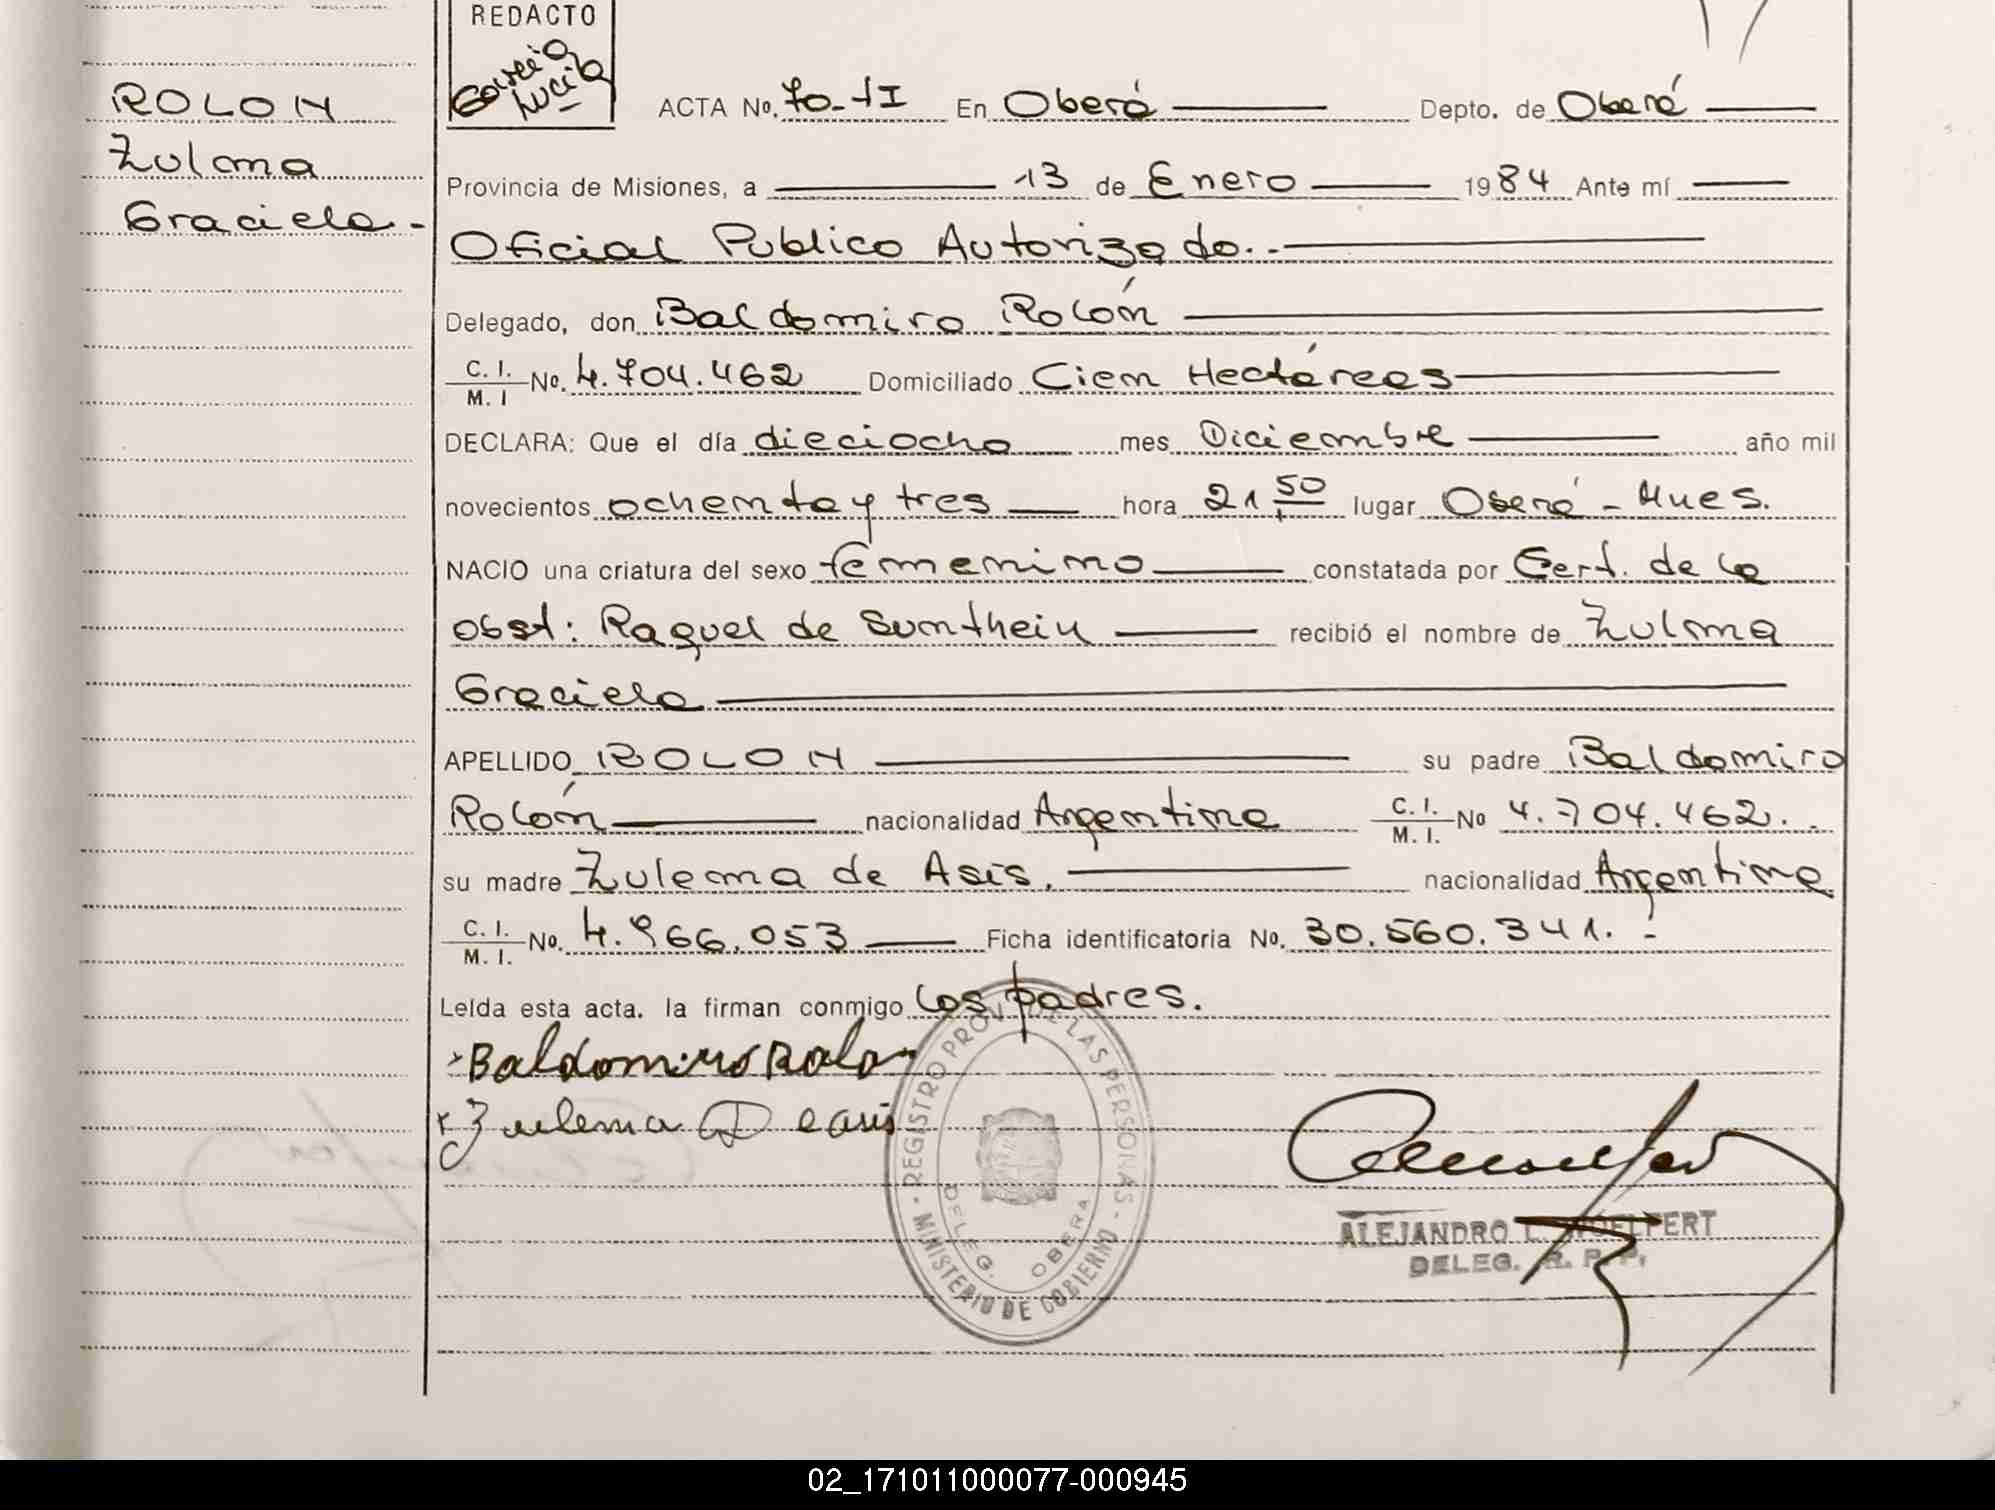 REDACTO
García
Lucía
ROLON
Zulma
Graciela.-
ACTA No. 70-II En Oberá Depto. de Oberá
Provincia de Misiones, a 13 de Enero 1984 Ante mí
Oficial Publico Autorizado.-
Delegado, don Baldomiro Rolón
C. I.
M. I No. 4.704.462 Domiciliado Cien Hectáreas
DECLARA: Que el día dieciocho mes Diciembre año mil
novecientos ochenta y tres hora 21,50 lugar Oberá - Mnes.
NACIO una criatura del sexo femenino constatada por Cert. de la
obst: Raquel de recibió el nombre de Zulma
Graciela
APELLIDO ROLON su padre Baldomiro
Rolón nacionalidad Argentina C. I.
M. I. No 4.704.462.-
su madre Zulema de Asis. nacionalidad Argentina
C. I.
M. I. No. 4.966.053 Ficha identificatoria No. 30.560.341.-
Leída esta acta. la firman conmigo los padres.
Baldomiro Rolon
Zulema De asis
REGISTRO PROV. DE LAS PERSONAS - MINISTERIO DE GOBIERNO -
DELEG. OBERA
ALEJANDRO L. WOELFERT
DELEG. R. P. P.
02_171011000077-000945